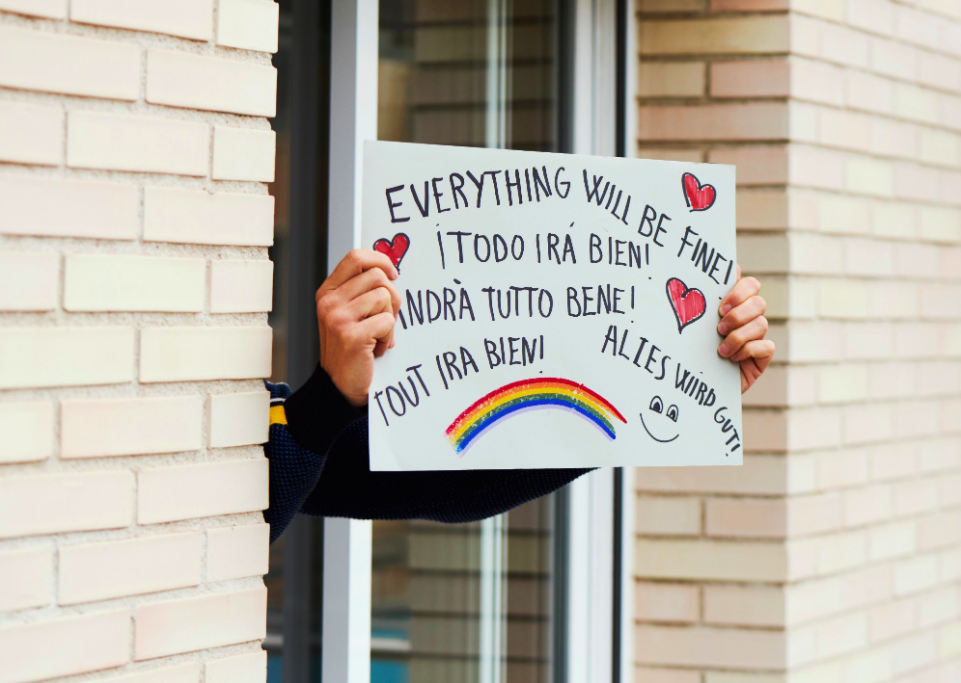 EVERYTHING WILL BE FINE!
¡TODO IRÁ BIEN!
ANDRÀ TUTTO BENE!
TOUT IRA BIEN!
ALIES WIRD GUT!